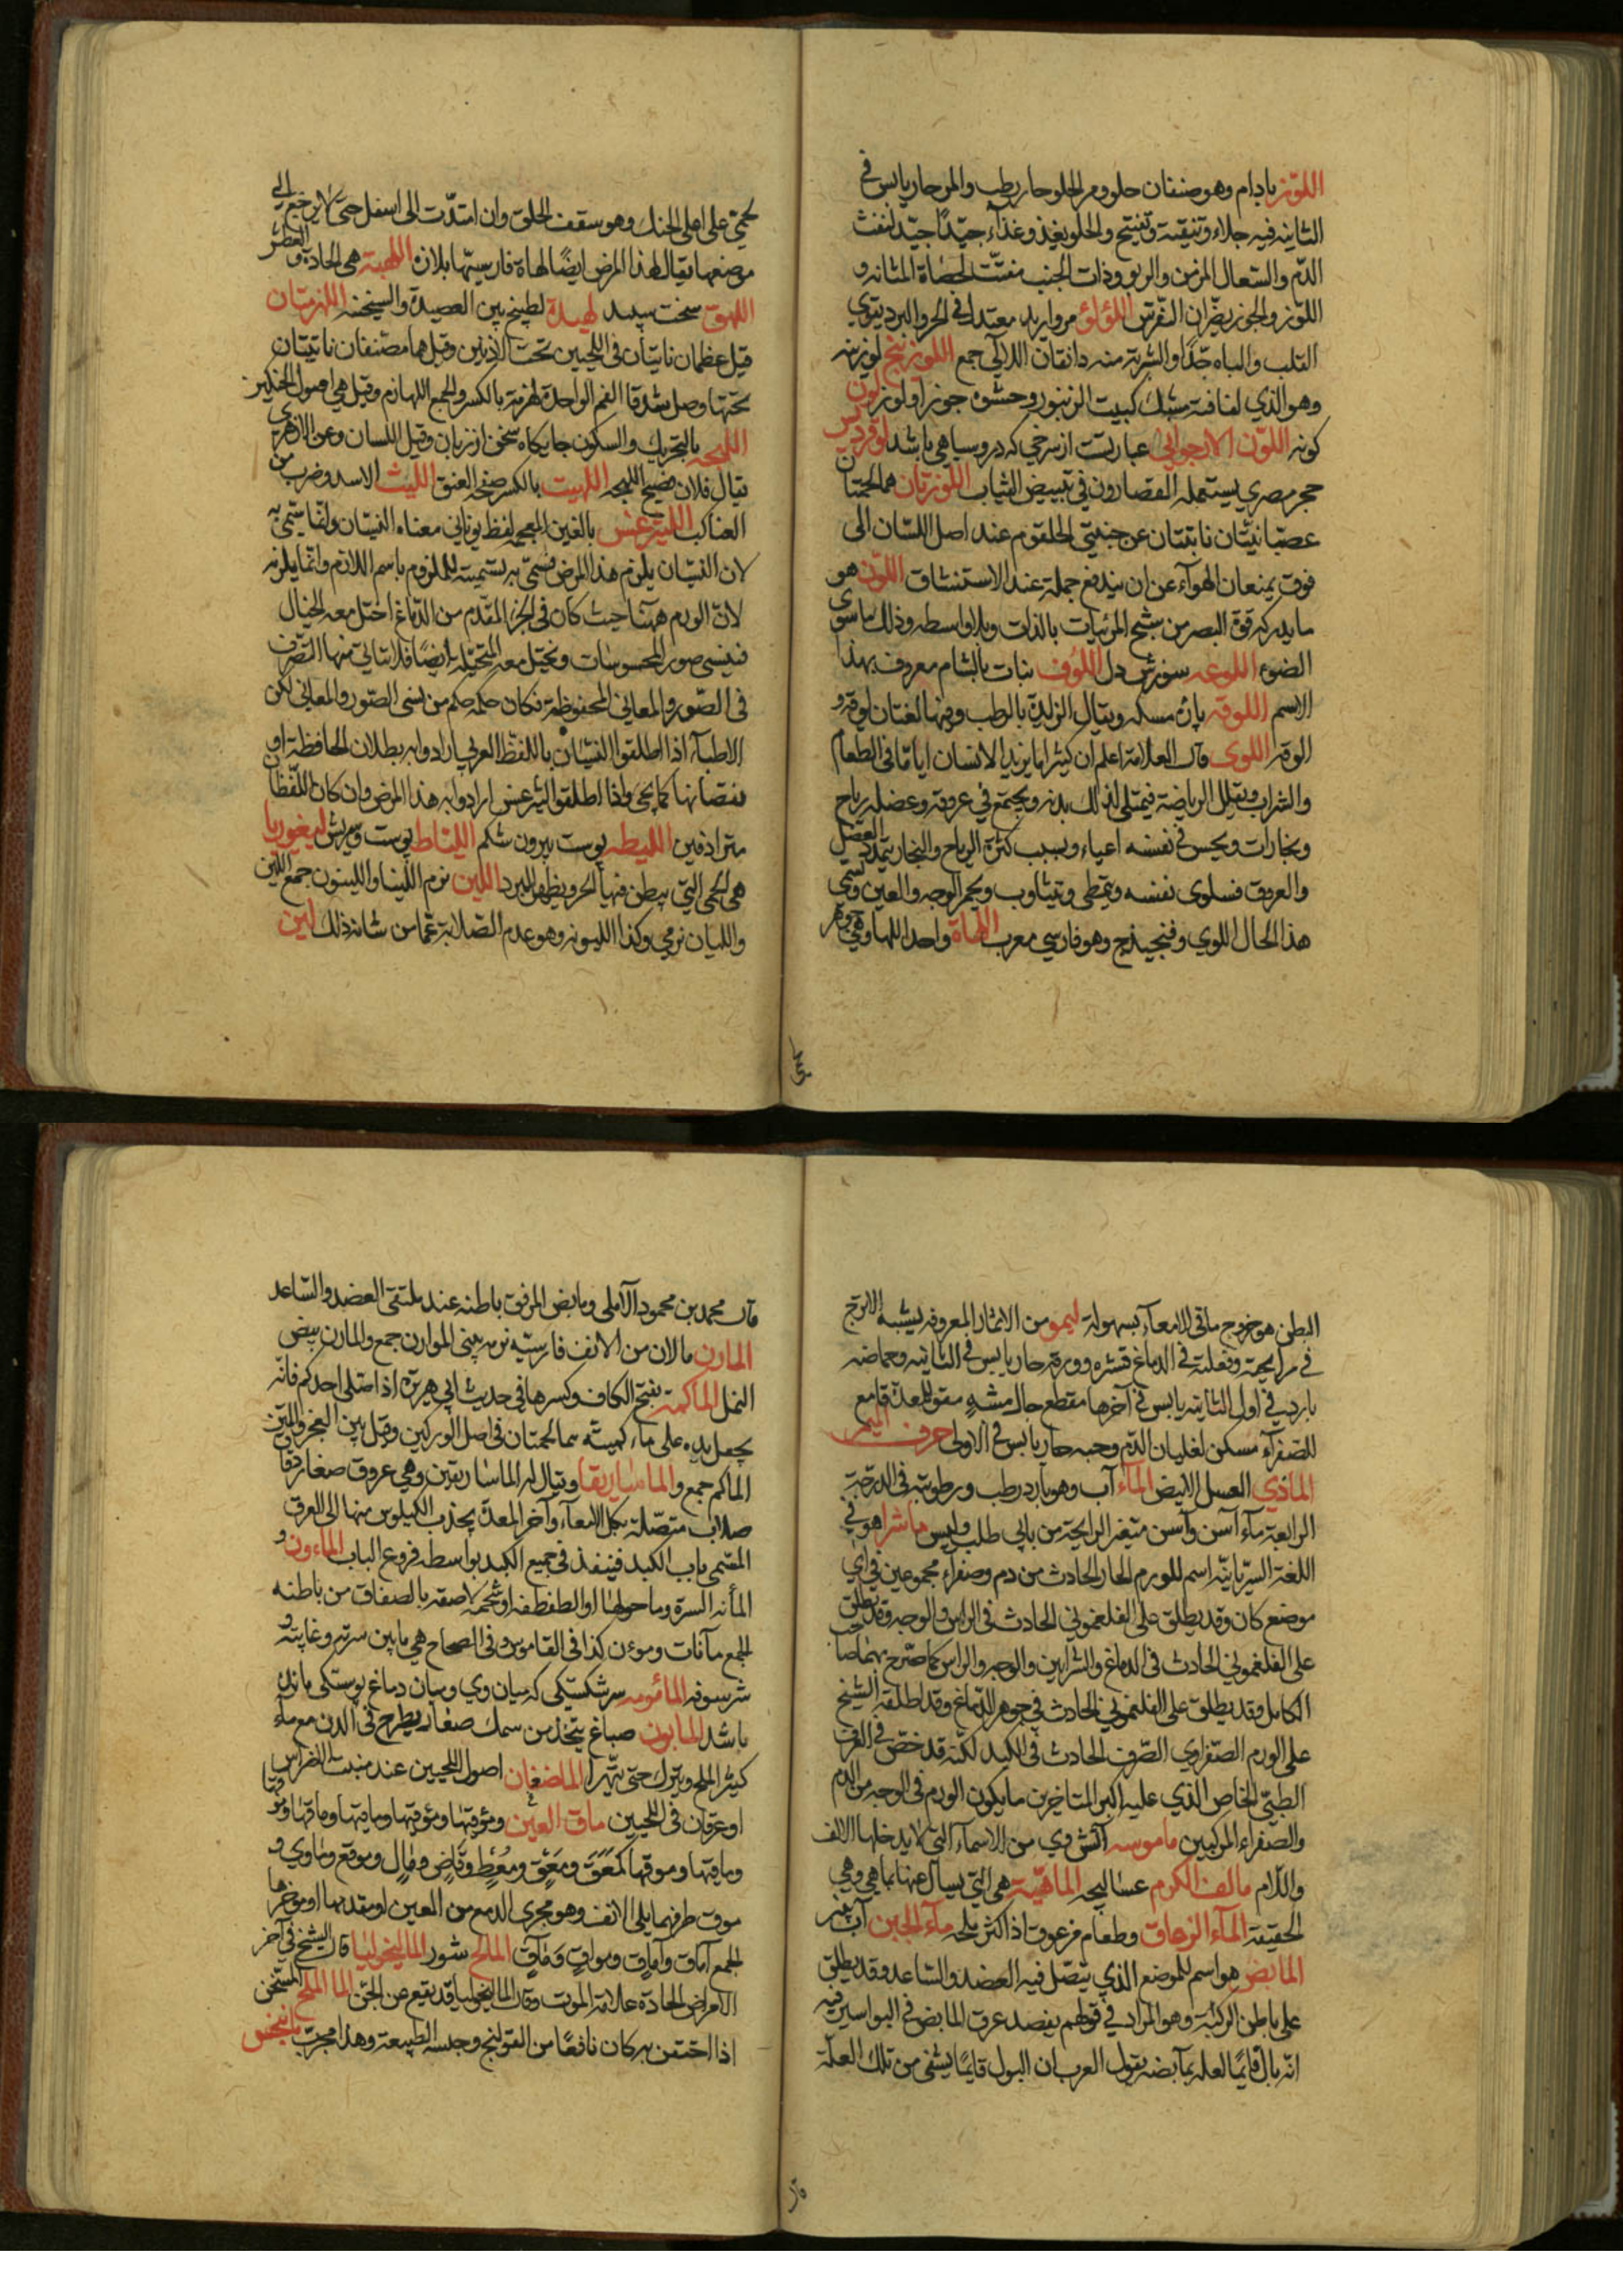 اللوز بادام وهو صنفان حلو ومر الحلو حار رطب والمر حار يابس في
الثانية فيه جلاء وتنقية وتفتيح والحلو يغذو غذاء جيدا جيد لنفث
الدم والسعال المزمن والربو وذات الجنب مفتت لحصاة المثانة و
اللوز والجوز يضران اللؤلؤ مرواريد معتدل في الحر والبرد يقوي
القلب والباه جدا والشربة منه دانقان اللآلي جمع اللوزينج لوزينه
وهو الذي لفافته مشبك كبيت الزنبور وحشوه جوز او لوز لون
كونه اللون الارجواني عبارتست از سرخي كه درو سياهي باشد
حجر مصري يستعمله القصارون في تبييض الثياب اللوزتان هما لحمتان
عصبانيتان نابتتان عن جنبتي الحلقوم عند اصل اللسان الى
فوق يمنعان الهواء عن ان يندفع جملة عند الاستنشاق اللون هو
ما يدركه قوة البصر من شبح المرئيات بالذات وبلا واسطه وذلك ما سوى
الضوء اللوعه سوزش دل اللوف نبات بالشام معروف بهذا
الاسم اللوقه مسكه ويقال الزبدة بالرطب وفيها لغتان لوقه و
الوقه اللوى قال العلامة اعلم ان كثيرا ما يزيد الانسان اياما في الطعام
والشراب ويقلل الرياضة فيمتلى لذلك بدنه ويجتمع في عروقه وعضله رياح
وبخارات ويحس في نفسه اعياء وبسبب كثرة الرياح والبخار يتمدد العضل
والعروق فسلوى نفسه ويتمطى ويتثاوب ويحمر الوجه والعين وتسمى
هذا الحال اللوي وهو فارسي معرب اللهاة واحد اللها وهي جوهر
لحمي على اعلى الحنك وهو سقف الحلق وان امتدت الى اسفل حتى لا يرجع الى
موضعها يقال لهذا المرض ايضا لهاة فارسيتها ملازه
اللهق سخت سپيد لهيدة لطبيخ بين العصيدة والسخينه اللهزمتان
قيل عظمان ناتيان في اللحيين تحت الاذنين وقيل هما مضغتان ناتيتان
تحتها وصل شدقا الفم الواحدة لهزمة بالكسر والجمع اللهازم وقيل هي اصول الحنكين
اللهجه بالتحريك والسكون جايگاه سخن از زبان وقيل اللسان وعن الازهري
يقال فلان فصيح اللهجه الليت بالكسر صفحه العنق الليث الاسد وضرب من
العناكب الليثرغس بالغين المعجمه لفظ يوناني معناه النسيان ولقا يسمى به
لان النسيان يلزم هذا المرض فسمي به تسمية للملزوم باسم اللازم وانما يلزمه
لان الورم ههنا حيث كان في الجزء المقدم من الدماغ اختل معه الخيال
فينسى صور المحسوسات ويختل معه المتخيله ايضا فلا يتاتي منها التصرف
في الصور والمعاني المحفوظة فكان حكمه حكم من نسى الصور والمعاني لكن
الاطباء اذا اطلقوا النسيان باللفظ العربي ارادوا به بطلان الحافظة او
نقصانها كما يجي واذا اطلقوا ليثرغس ارادوا به هذا المرض وان كان اللفظان
مترادفين الليطه پوست بيرون شكم اللياط پوست وسريش ليغوريا
هي الحمى التي يبطن فيها الحر ويظهر البرد اللين نرم اللينا واللينون جمع اللين
والليان نرمي وكذا الليونه وهو عدم الصلابة عما من شانه ذلك لين
البطن هو خروج ما في الامعاء بسهولة ليمو من الاثمار المعروفه يشبه الاترج
في مرايحته وفعلته في الدماغ قشره وورقه حار يابس في الثانيه وحماضه
بارد في اول الثانيه يابس في آخرها مقطع حال مشه مقو للمعدة قامع
للصفرآء مسكن لغليان الدم وحبه حار يابس في الاولى حرف الميم
الماذي العسل الابيض المآء آب وهو بارد رطب ورطوبته في الدرجة
الرابعة مآء آسن وآسن متغير الرايحة من بابي طلب وليس ماشرا هو في
اللغة السريانيه اسم للورم الحار الحادث من دم وصفراء مجموعين في اي
موضع كان وقد يطلق على الفلغموني الحادث في الراس والوجه وقد يطلق
على الفلغموني الحادث في الدماغ والشرايين والوجه والراس كما صرح بهما صاحب
الكامل وقد يطلق على الفلغموني الحادث في جوهر الدماغ وقد اطلقه الشيخ
على الورم الصفراوي الصرف الحادث في الكبد لكنه قد خص في العرف
الطبي الخاص الذي عليه اكبر المتاخرين ما يكون الورم في الوجه من الدم
والصفراء المركبين ماموسه آتش وي من الاسماء التي لا يدخلها الالف
واللام مالف الكرم عساليجه الماهية هي التي يسال عنها بما هي وهي
الحقيقة المآء الزعاق وطعام مزعوق اذا كثر ملحه مآء الجبن آب پنير
المابض هو اسم للموضع الذي يتصل فيه العضد والساعد وقد يطلق
على باطن الركبة وهو المراد في قولهم يفصد عرق المابض في البواسير فيه
انه بال قايما لعله بمآبضه يقول العرب ان البول قايما يشفى من تلك العلة
قال محمد بن محمود الآملي ومابض المرفق باطنه عند ملتقى العضد والساعد
المارن مالان من الانف فارسيه نرمه بيني الموارن جمع والمازن بيض
النمل الماكمة بفتح الكاف وكسرها في حديث ابي هريرة اذا صلى احدكم فلا
يجعل يده على ماكمتيه هما لحمتان في اصل الوركين وقيل بين العجز والمتن
الماكم جمع والماساريقا ويقال له الماساريقين وهي عروق صغار رقاق
صلاب متصلة بكل الامعآء وآخر المعدة يجذب الكيلوس منها الى العرق
المسمى باب الكبد فينفذ في جميع الكبد بواسطه فروع الباب الماءون و
المأنه السرة وما حولها او الطفطفه او شحمة لاصقه بالصفاق من باطنه
الجمع مآنات ومؤن كذا في القاموس وفي الصحاح هي ما بين سرته وعانته و
شرسوفه المأمومه سرشكستگي كه ميان وي وميان دماغ پوستكي مانده
باشد المابون صباغ يتخذ من سمك صغار يطرح في الدن مع مآء
كثير الملح ويترك حتى يتهرا الماضغان اصول اللحيين عند منبت الاضراس
او عرقان في اللحيين ماق العين ومؤقيها ومؤقها وماقيها وماقها
وماقيها وموقها كمعق ومعق ومعط وقاض ومال وموقع وماوي و
موق طرفها يلي الانف وهو مجرى الدمع من العين او مقدمها او موخرها
الجمع آماق وآماق ومواق ومآق المالح شور الماليخوليا قال الشيخ في آخر
الامراض الحادة علامة الموت وقال الماليخوليا قد يقع عن الجن الما الملح المسخن
اذا احتقن به كان نافعا من القولنج وجلسه الطبيعة وهذا مجرب